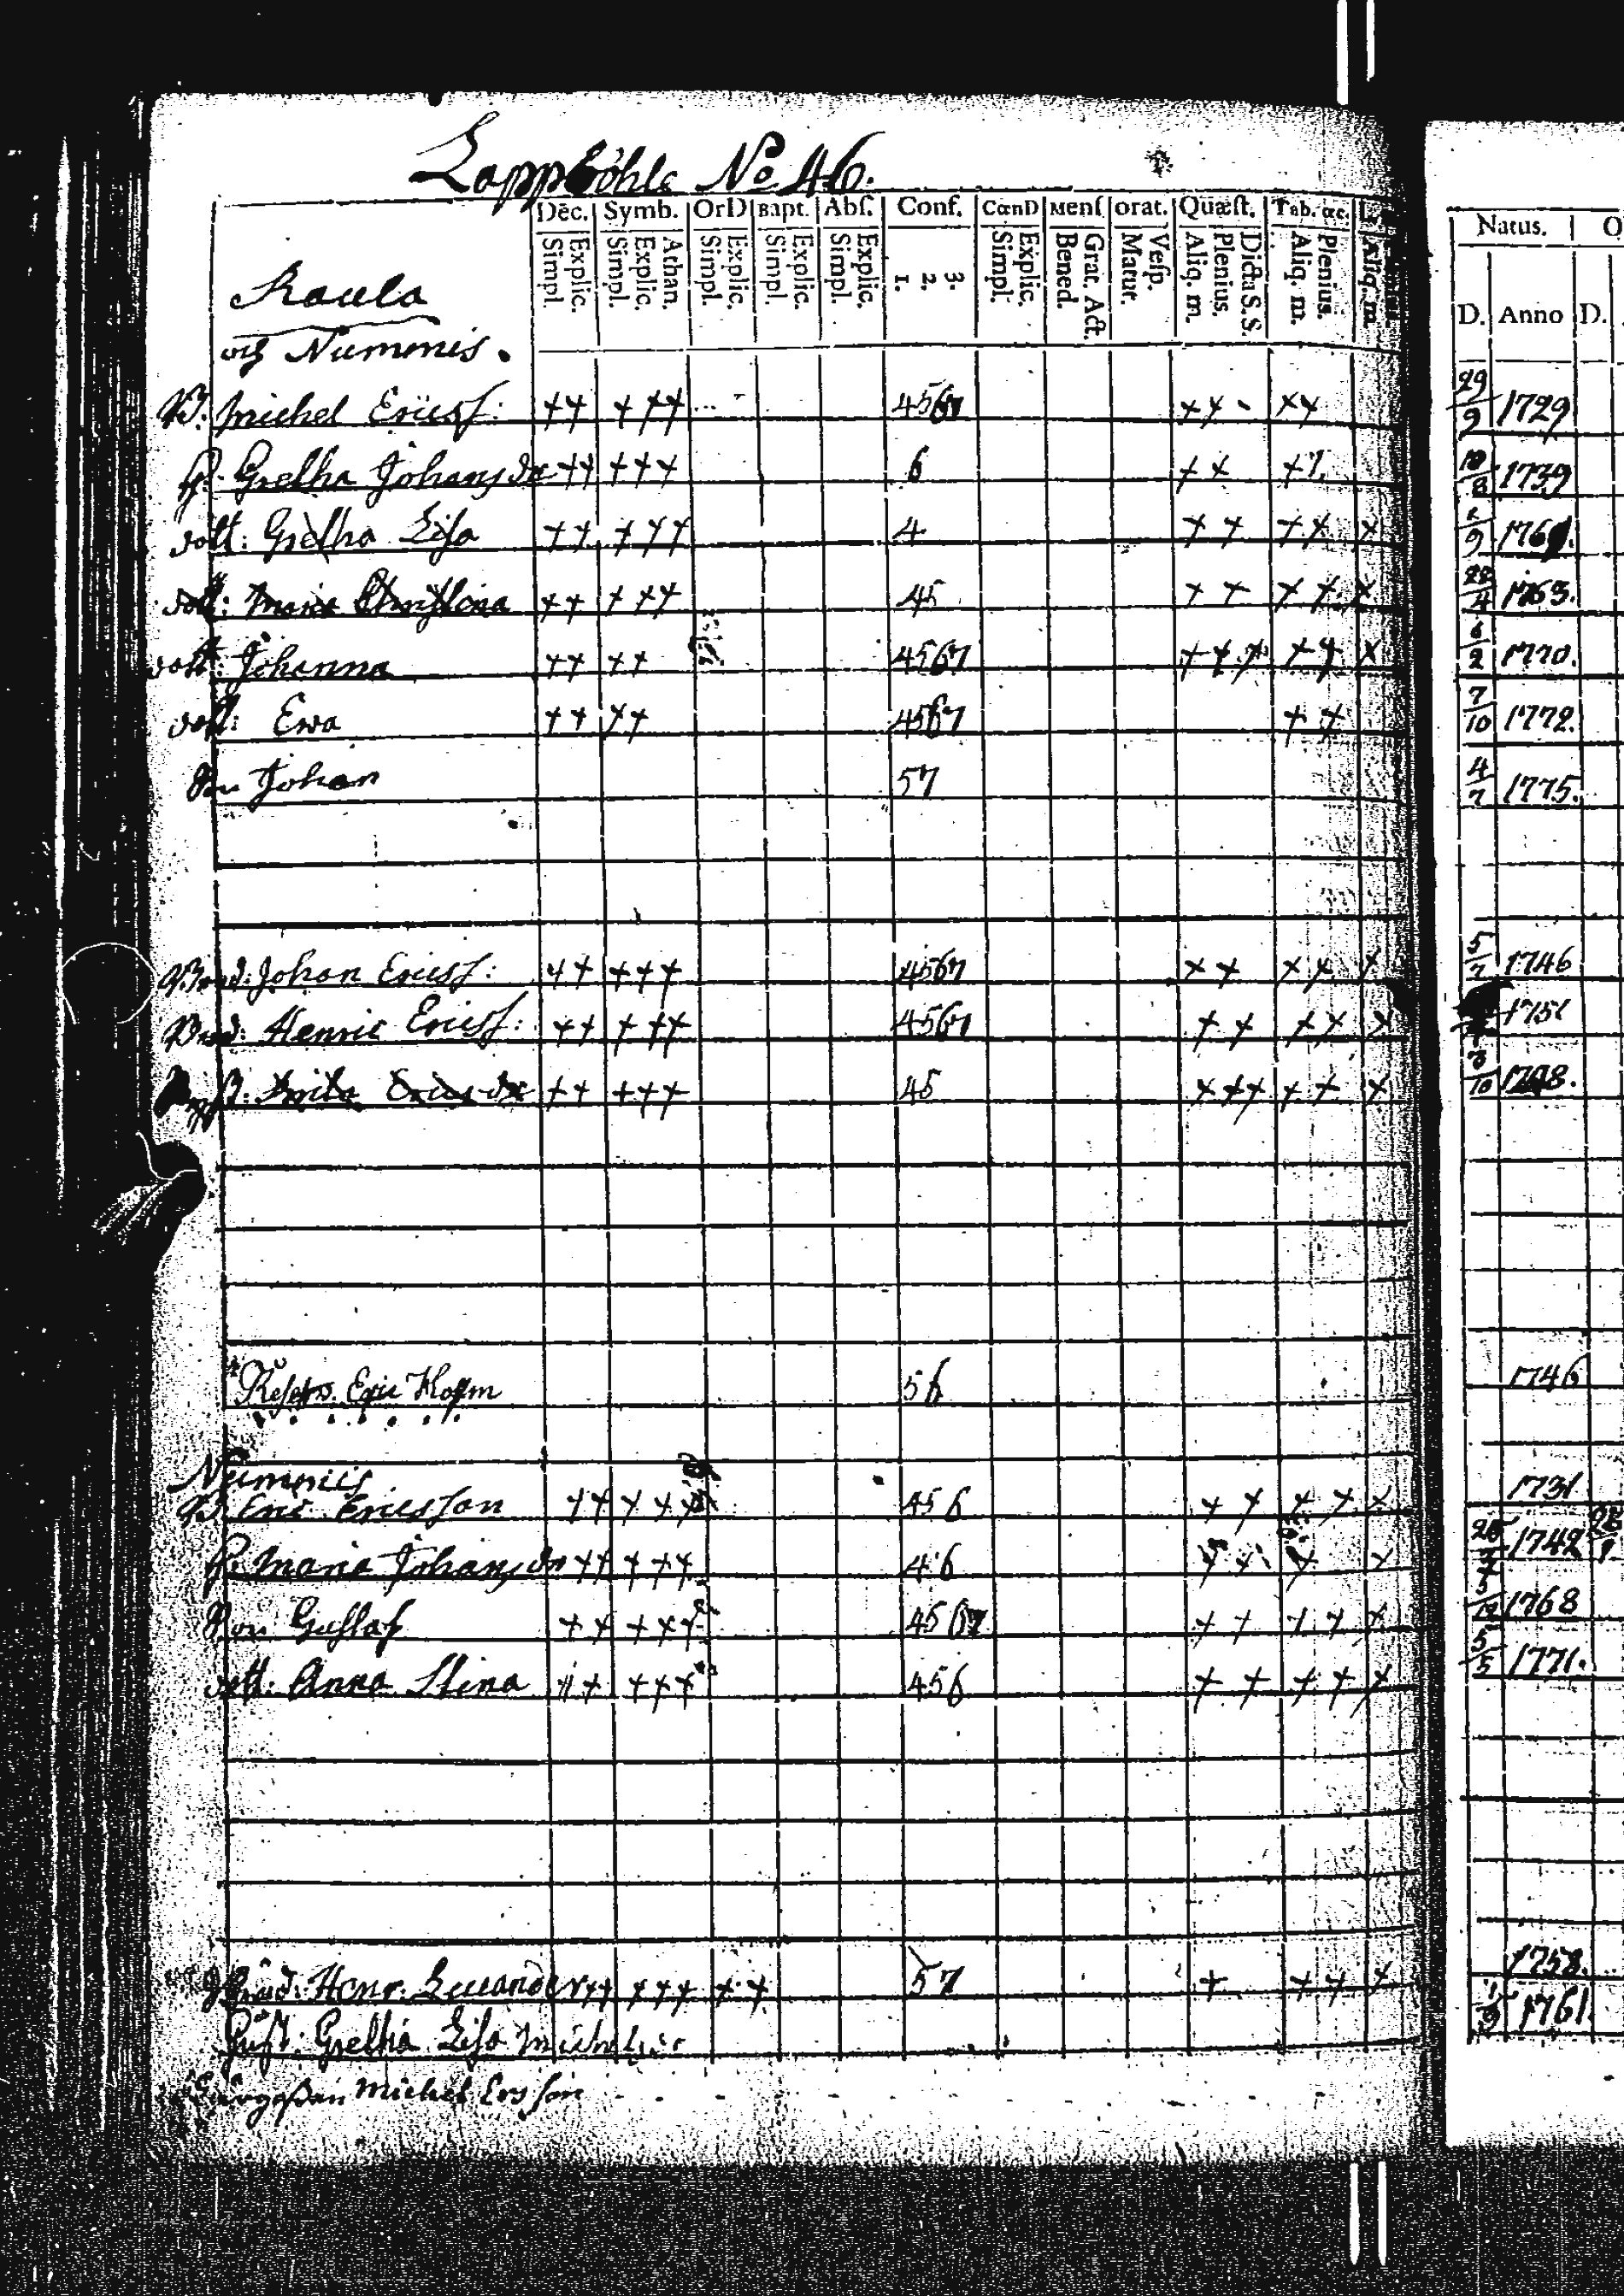 Lappböhle No 46.
Dēc. Symb. OrD Bapt. Abſ. Conf. CœnD Menſ orat. Quæſt. Tab. œc. Natus.
Simpl. Explic. Simpl. Explic. Athan. Simpl. Explic. Simpl. Explic. Simpl. Explic. 1. 2. 3. Simpl. Explic. Bened. Grat. Act. Matut. Veſp. Aliq. m. Plenius. Dicta S. S. Aliq. m. Plenius. Aliq. m. D. Anno D.
Raula
och Nummis.
B. Michel Ericss: ++ +++ 4567 ++ - ++ 29/9 1729
H. Gretha Johansdr ++ +++ 6 ++ ++ 10/8 1739
dott: Gretha Lisa ++ +++ 4 ++ ++ + 1/9 1761.
dott: Maria Christina ++ +++ 45 ++ ++ + 22/4 1763.
dott: Johanna ++ ++ 4567 +++ ++ + 6/2 1770.
dott: Ewa ++ ++ 4567 ++ 7/10 1772.
Son Johan 57 4/7 1775.
Brod: Johan Ericss: ++ +++ 4567 ++ ++ + 5/7 1746
Brod: Henric Ericss: ++ +++ 4567 ++ ++ + 1751
Brita Ericsdr ++ +++ 45 +++ ++ + 3/10 1748.
Eric 56 1746
Nummis
B. Eric Ericsson ++ +++ 456 ++ ++ + 1731
H. Maria Johansdr ++ +++ 46 ++ + + 1742
Son Gustaf ++ +++ 4567 ++ ++ + 1768
dott: Anna Stina ++ +++ 456 ++ ++ + 5/5 1771.
Henr. ++ +++ ++ 57 + ++ + 1758.
Hust: Gretha Lisa 1/9 1761.
Michel Ersson